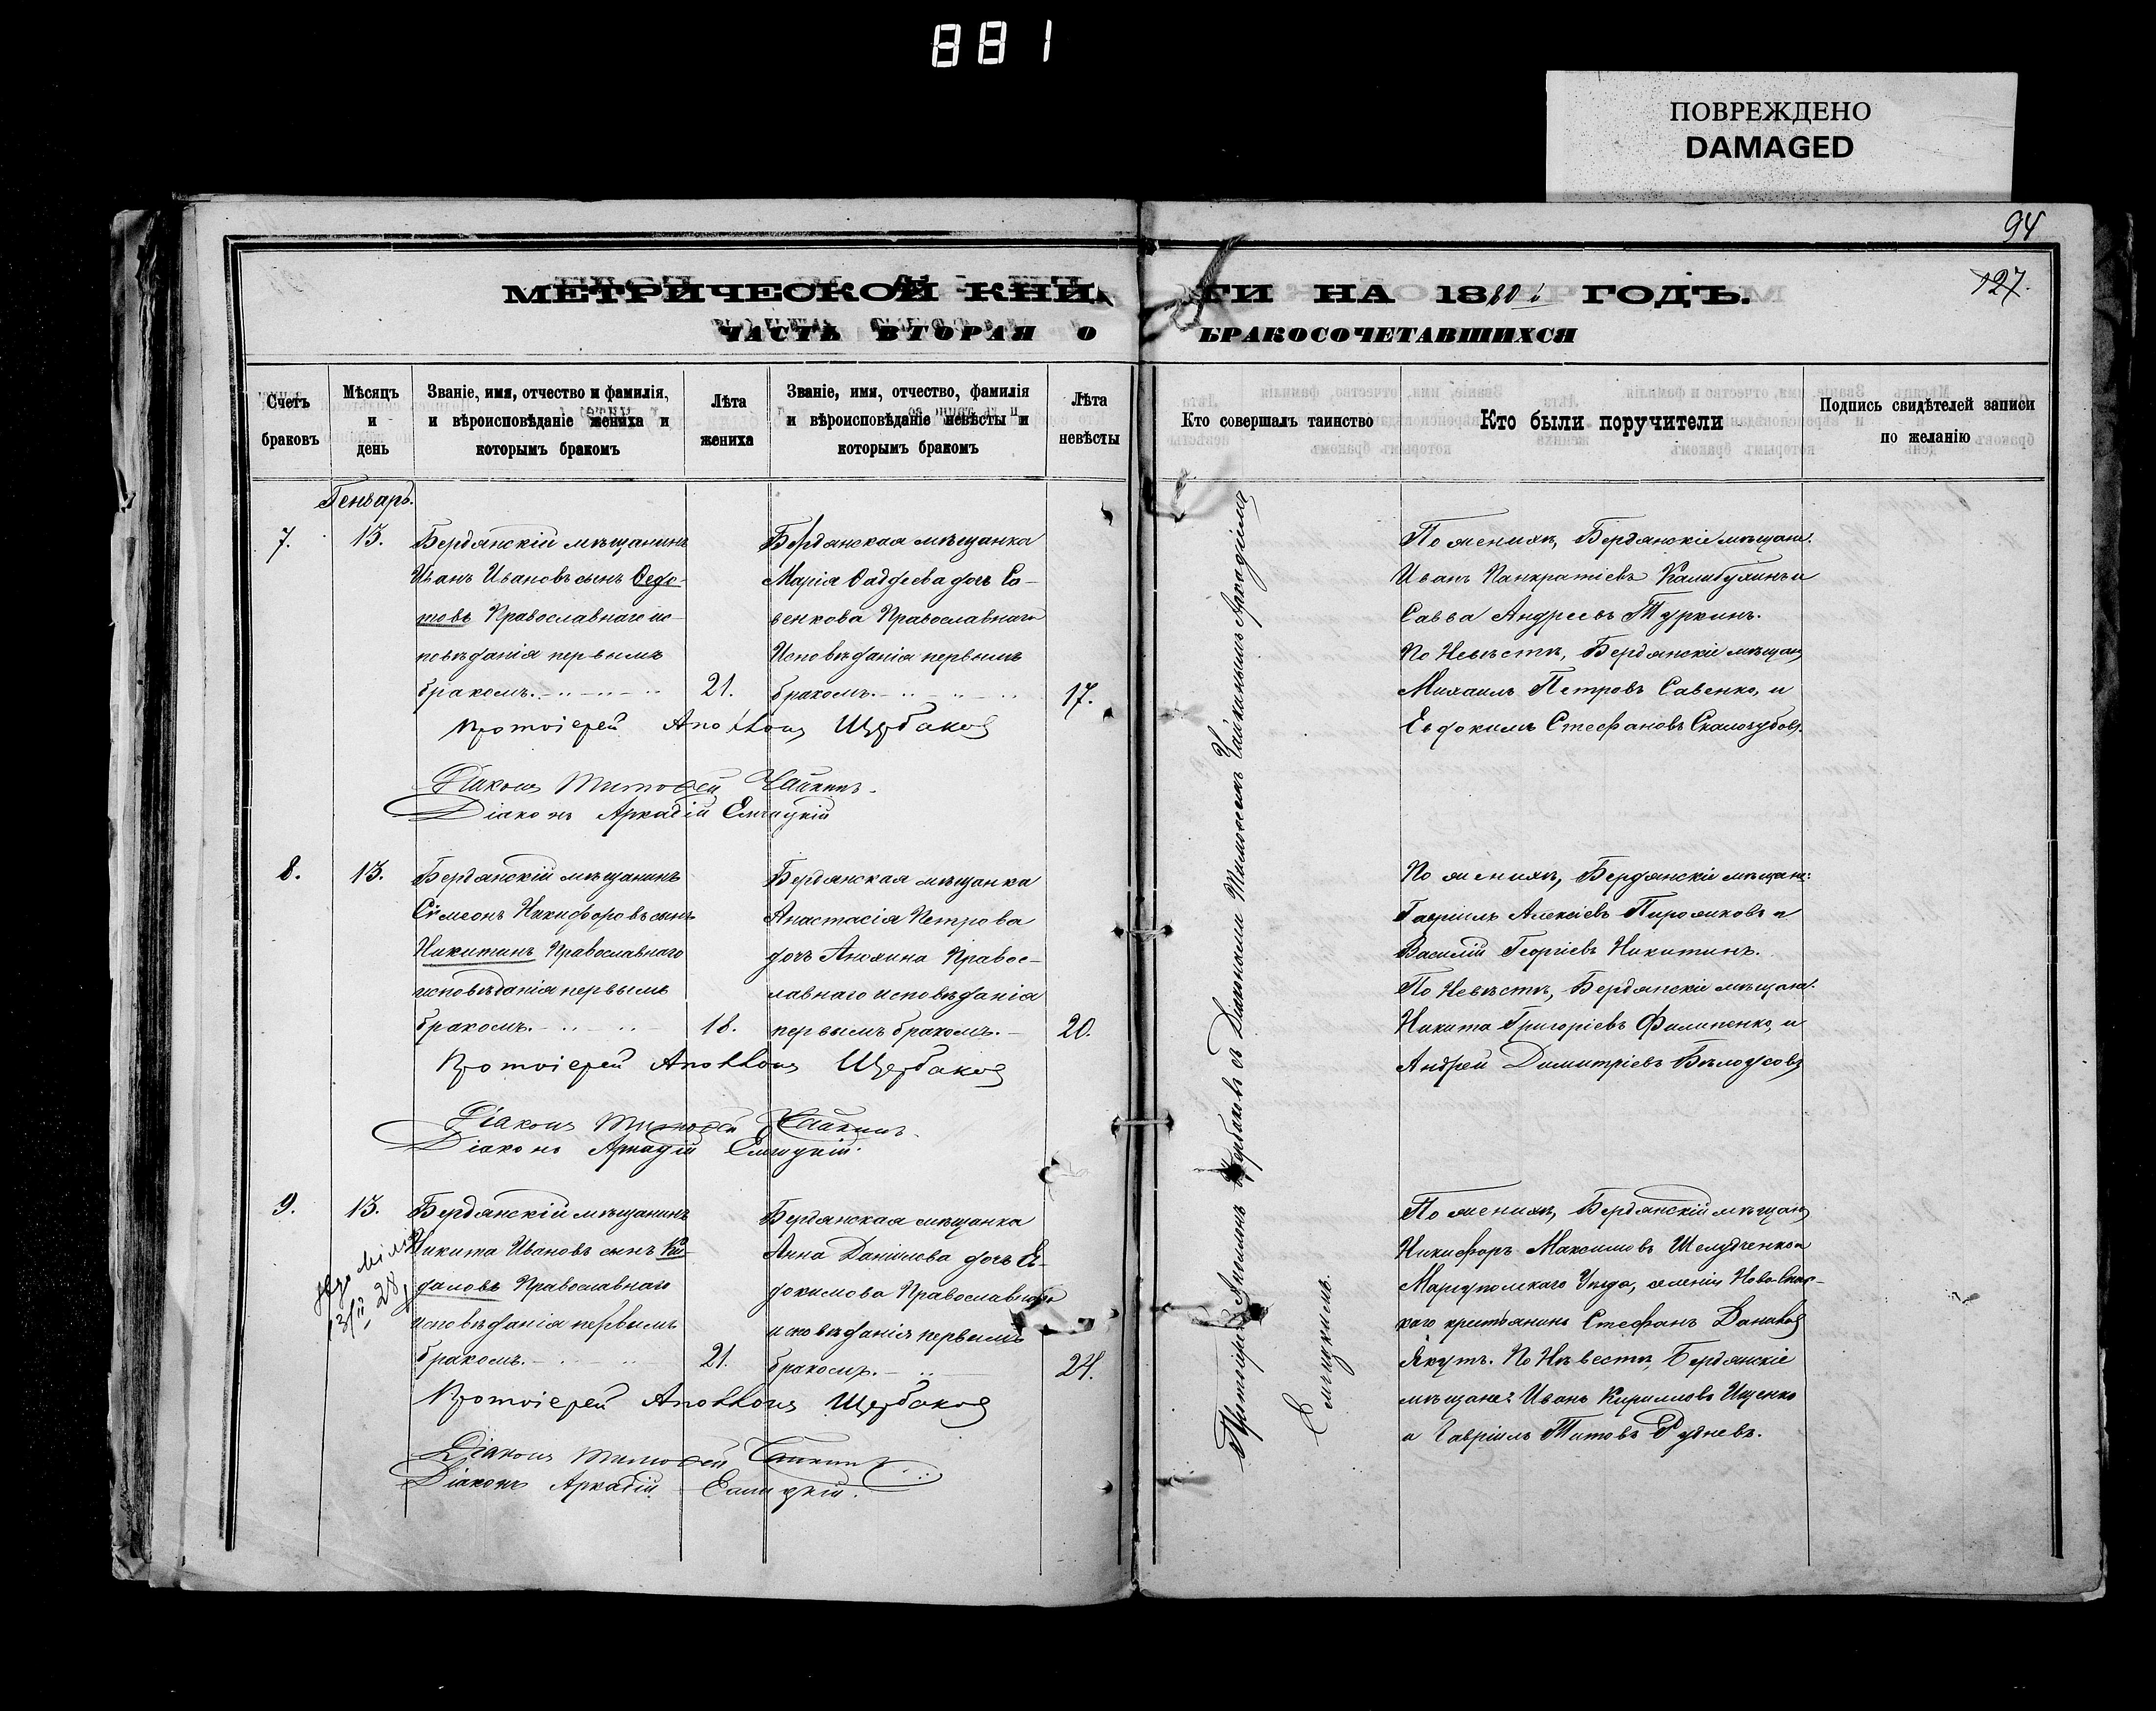 881
ПОВРЕЖДЕНО
DAMAGED
94
127.
МЕТРИЧЕСКОЙ КНИГИ НА 1880й ГОДЪ.
ЧАСТЬ ВТОРАЯ О БРАКОСОЧЕТАВШИХСЯ
Счетъ браковъ
Мѣсяцъ и день
Званіе, имя, отчество и фамилія, и вѣроисповѣданіе жениха и которымъ бракомъ
Лѣта жениха
Званіе, имя, отчество, фамилія и вѣроисповѣданіе невѣсты и которымъ бракомъ
Лѣта невѣсты
Кто совершалъ таинство
Кто были поручители
Подпись свидѣтелей записи по желанію
Генварь.
7.
13.
Бердянскій мѣщанинъ
Иванъ Ивановъ сынъ Ѳедо-
товъ Православнаго ис-
повѣданія первымъ
бракомъ.
21.
Бердянская мѣщанка
Марія Ѳаддеева дочь Са-
венкова Православнаго
Исповѣданія первымъ
бракомъ.
17.
Протоіерей Щербаковъ
Діаконъ Тимоѳей Чайкинъ.
Діаконъ Аркадій Елчицкій
По женихѣ, Бердянскіе мѣщане:
Иванъ Панкратіевъ и
Савва Андреевъ Туркинъ.
По Невѣстѣ, Бердянскіе мѣщане
Михаилъ Петровъ Савенко, и
Евдокимъ Стефановъ Скалозубовъ.
8.
13.
Бердянскій мѣщанинъ
Сѵмеонъ Никифоровъ сынъ
Никитинъ Православнаго
исповѣданія первымъ
бракомъ.
18.
Бердянская мѣщанка
Анастасія Петрова
дочь Анохина Правос-
лавнаго исповѣданія
первымъ бракомъ.
20.
Протоіерей Щербаковъ
Діаконъ Тимоѳей Чайкинъ.
Діаконъ Аркадій Елчицкій.
По женихѣ, Бердянскіе мѣщане:
Гавріилъ Алексіевъ Пирожковъ и
Василій Георгіевъ Никитинъ.
По Невѣстѣ, Бердянскіе мѣщане:
Никита Григоріевъ Филипенко, и
Андрей Димитріевъ Бѣлоусовъ
9.
13.
28
Бердянскій мѣщанинъ
Никита Ивановъ сынъ Ки-
даловъ Православнаго
исповѣданія первымъ
бракомъ.
21.
Бердянская мѣщанка
Анна Даніилова дочь Ев-
докимова Православнаго
исповѣданія первымъ
бракомъ.
24.
Протоіерей Щербаковъ
Діаконъ Тимоѳей Чайкинъ
Діаконъ Аркадій Елчицкій.
По женихѣ, Бердянскій мѣщанъ
Никифоръ Максимовъ Шелудченко и
Маріупольскаго Уѣзда, селенія Ново-Спас-
каго крестьянинъ Стефанъ
Якутъ. По Нѣвестѣ, Бердянскіе
мѣщане: Иванъ Кирилловъ Ищенко
и Гавріилъ Титовъ Рудневъ.
Протоіерей Щербаковъ съ Діаконами Тимоѳеемъ Чайкинымъ и Аркадіемъ
Елчицкимъ.